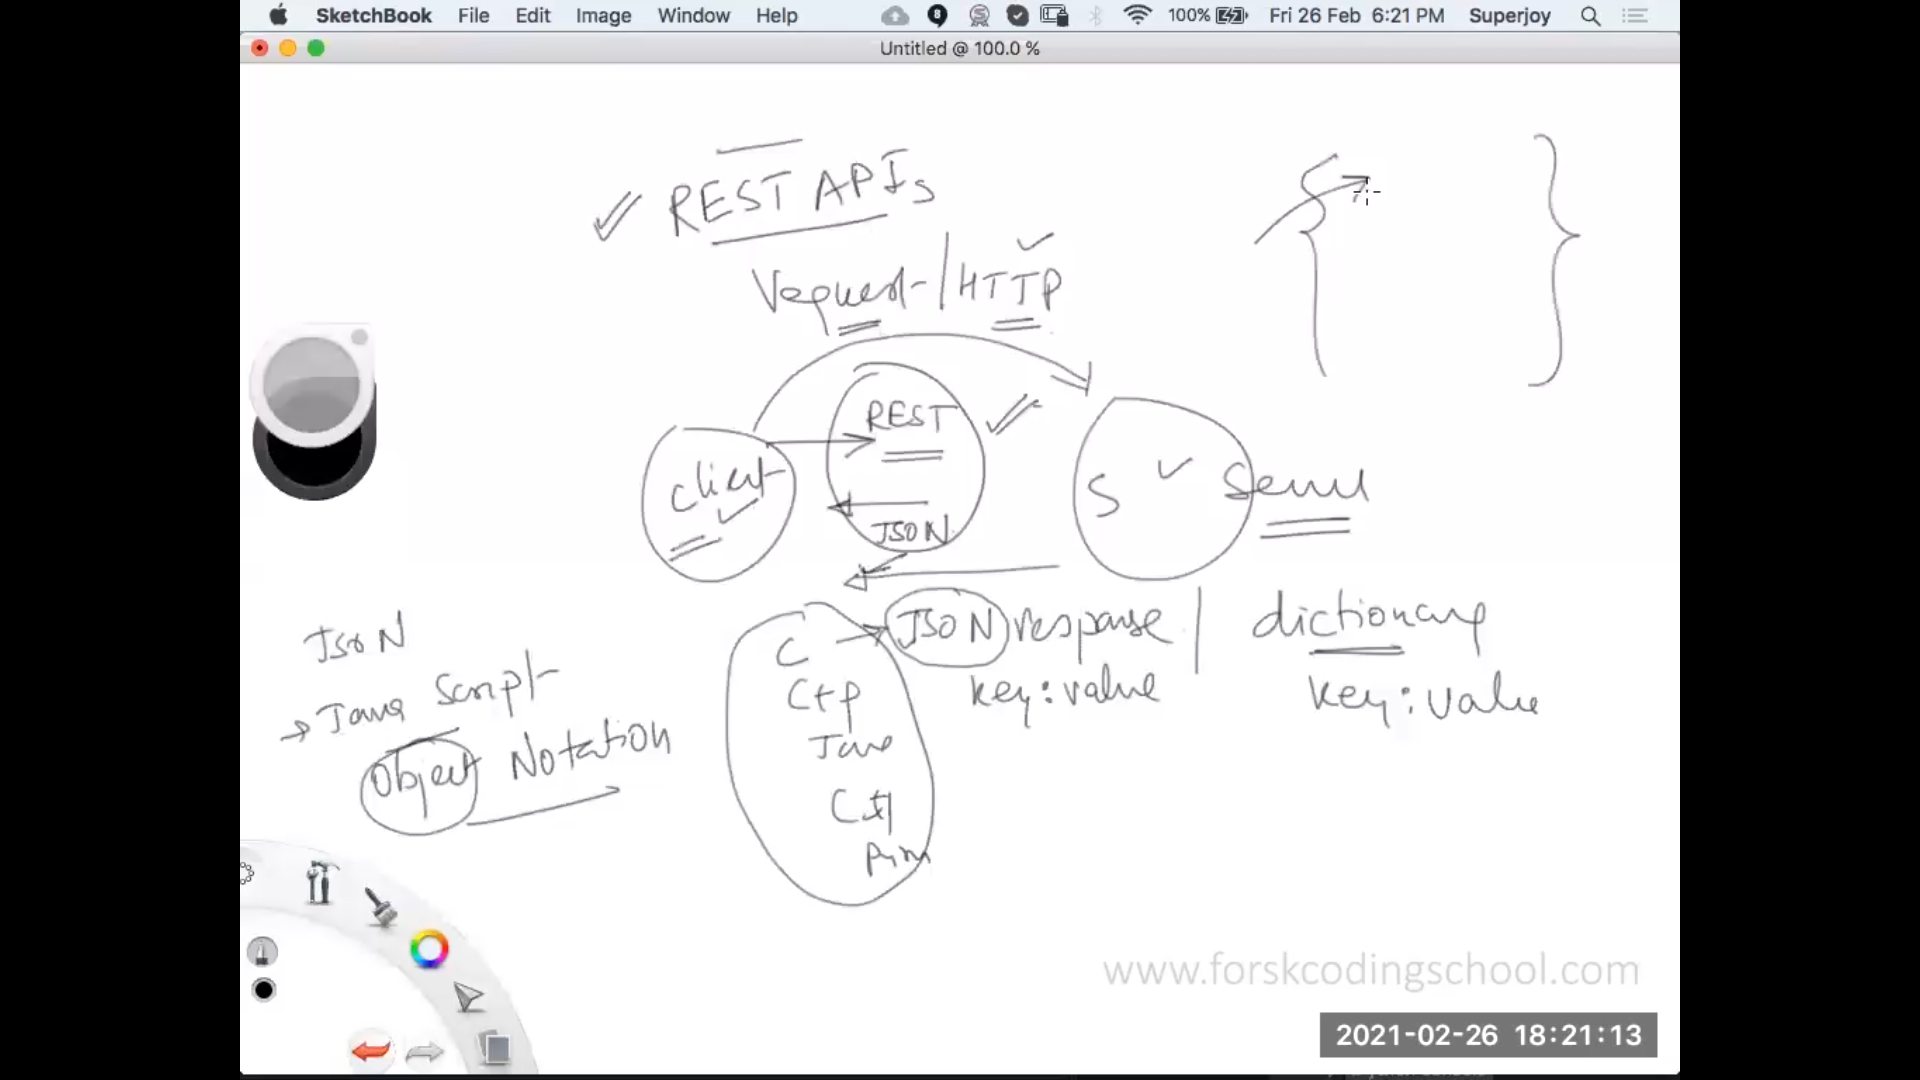 SketchBook File Edit Image Window Help 8 100% Fri 26 Feb 6:21 PM Superjoy
Untitled @ 100.0 %
REST APIs
request / HTTP
REST
client
JSON
S
JSON response | dictionary
key:value key:value
JSON
Java Script
Object Notation
C
Java
www.forskcodingschool.com
2021-02-26 18:21:13